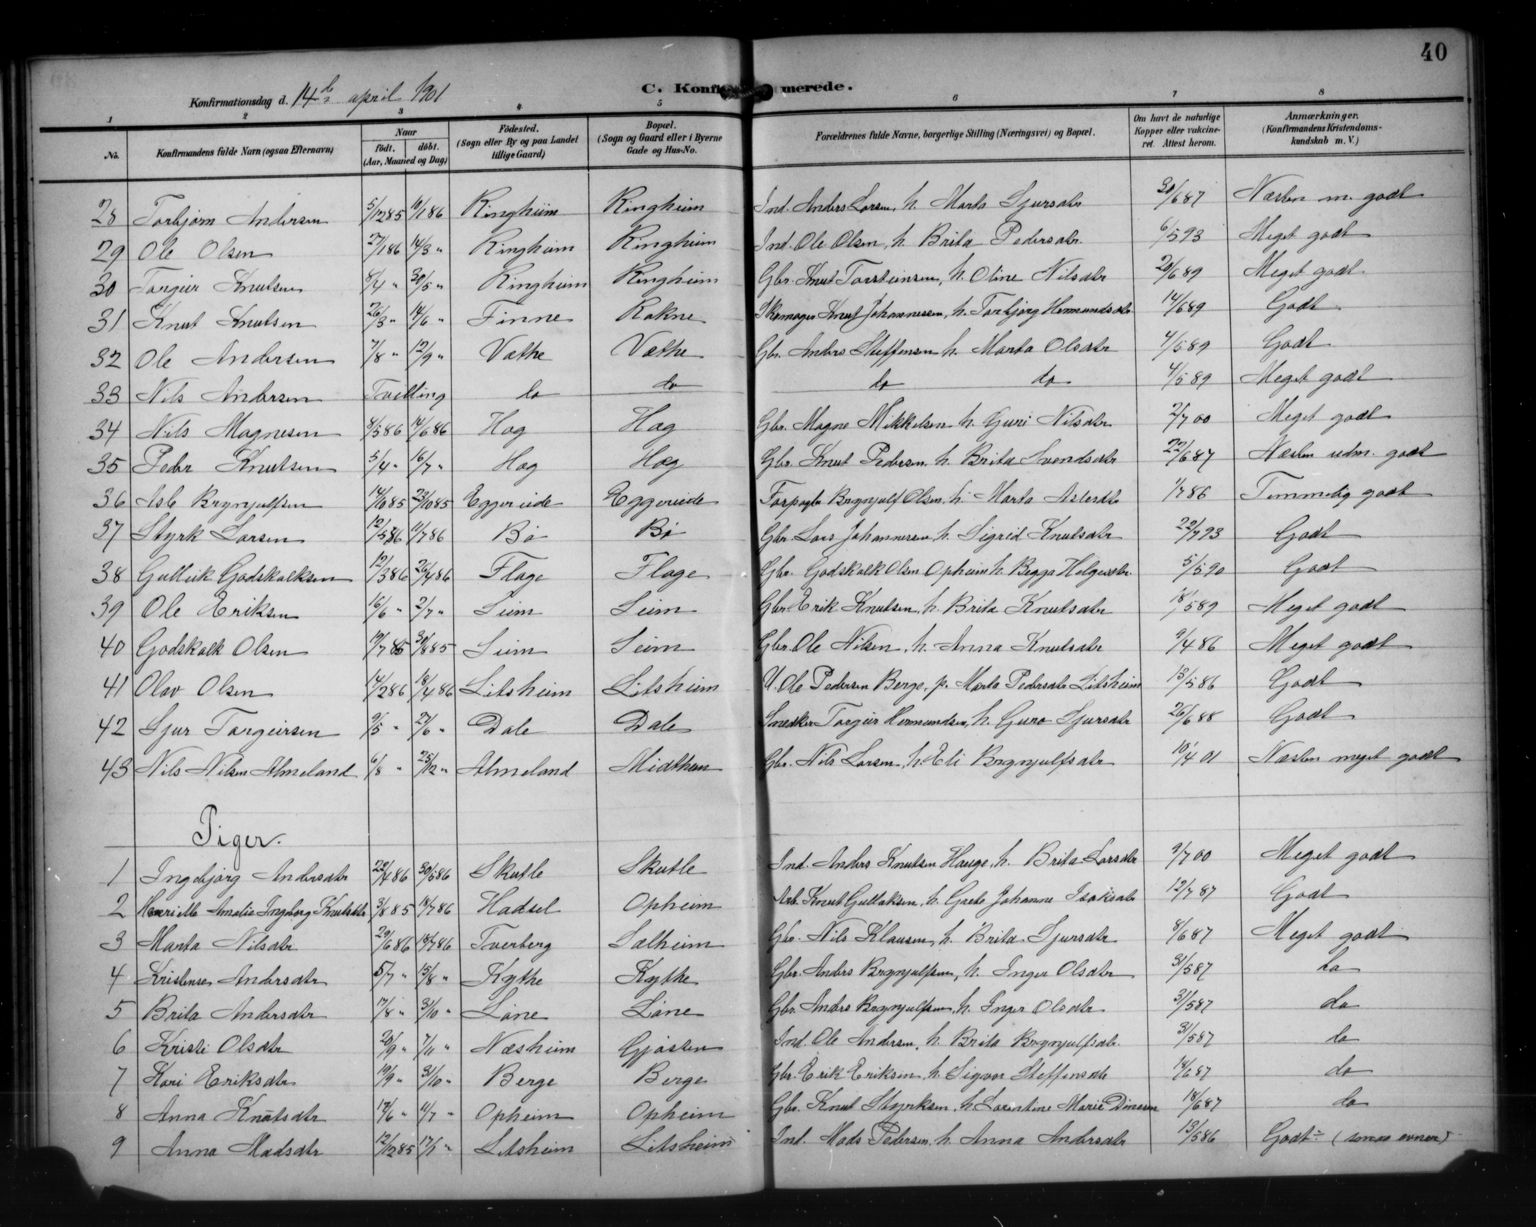 40
Konfirmationsdag d. 14de april 1901
C. Konfirmerede.
1 2 3 4 5 6 7 8
No. Konfirmandens fulde Navn (ogsaa Efternavn) Naar født. døbt. (Aar, Maaned og Dag) Fødested. (Sogn eller By og paa Landet tillige Gaard) Bopæl. (Sogn og Gaard eller i Byerne Gade og Hus-No. Forældrenes fulde Navne, borgerlige Stilling (Næringsvei) og Bopæl. Om havt de naturlige Kopper eller vaccineret. Attest herom. Anmærkninger. (Konfirmandens Kristendomskundskab m. V.)
28 Torbjørn Andersen 5/1285 10/186 Ringheim Ringheim Ind. Anders Larsen, h. Marta Sjursdtr 30/687 Næsten m. godt
29 Ole Olsen 27/186 14/3 " Ringheim Ringheim Ind. Ole Olsen, h. Brita Pedersdtr. 6/593 Meget godt
30 Torgeir Knutsen 8/4 " 30/5 " Ringheim Ringheim Gbr. Knut Torsteinsen, h. Oline Nilsdtr 20/689 Meget godt
31 Knut Knutsen 26/3 " 14/6 " Finne Rokne Skomager Knut Johannessen, h. Torbjørg Hermundsdtr 14/689 Godt
32 Ole Andersen 7/8 " 12/9 " Væthe Væthe Gbr. Anders Steffensen h. Marta Olsdtr 4/589 Godt
33 Nils Andersen Tvilling do do do do 4/589 Meget godt
34 Nils Magnesen 4/586 14/686 Hæg Hæg Gbr. Magne Mikkelsen h. Guri Nilsdtr 2/700 Meget godt
35 Peder Knutsen 5/4 " 16/7 " Hæg Hæg Gbr. Knut Pedersen h. Brita Svendsdtr 22/687 Næsten udm. godt
36 Asle Brynjulfsen 14/1085 25/1085 Eggereide Eggereide Forpagter Brynjulf Olsen, h. Marta Aslesdtr 1/786 Temmelig godt
37 Styrk Larsen 12/586 11/786 Bø Bø Gbr. Lars Johannesen h. Sigrid Knutsdtr 22/793 Godt
38 Gulleik Godskalksen 12/386 26/486 Flage Flage Gbr. Godskalk Olsen Opheim h. Begga Helgesdtr 5/590 Godt
39 Ole Eriksen 16/6 " 2/7 " Seim Seim Gbr. Erik Knutsen, h. Brita Knutsdtr 18/589 Meget godt
40 Godskalk Olsen 19/785 30/885 Seim Seim Gbr. Ole Nilsen, h. Anna Knutsdtr 9/486 Meget godt
41 Olav Olsen 14/286 18/486 Litsheim Litsheim U. Ole Pedersen Berge, p. Marta Pedersdtr Litsheim 13/586 Godt
42 Sjur Torgeirsen 9/5 " 27/6 " Dale Dale Snedker Torgeir Hermundsen, h. Guro Sjursdtr 26/688 Godt
43 Nils Nilsen Almeland 6/8 " 25/12 " Almeland Midthun Gbr. Nils Larsen, h. Eli Brynjulfsdtr 10/401 Næsten meget godt
Piger.
1 Ingebjørg Andersdtr 22/486 30/586 Skutle Skutle Ind. Anders Knutsen Hauge, h. Brita Larsdtr 9/700 Meget godt
2 Henriette Amalie Ingeborg Knutsdtr 3/885 14/786 Hadsel Opheim Arb. Knut Gullaksen, h. Grete Johanne Isaksdtr 12/787 Godt
3 Marta Nilsdtr 29/686 18/786 Tverberg Sælheim Gbr. Nils Klausen, h. Brita Sjursdtr 8/687 Meget godt
4 Kristense Andersdtr 5/7 " 15/8 " Kythe Kythe Gbr. Anders Brynjulfsen, h. Inger Olsdtr 31/587 do
5 Brita Andersdtr 17/8 " 3/10 " Løne Løne Gbr. Anders Brynjulfsen h. Inger Olsdtr 31/587 do
6 Kristi Olsdtr 26/9 " 7/11 " Næsheim Gjøsten Ind. Ole Andersen, h. Brita Brynjulfsdtr. 31/587 do
7 Kari Eriksdtr 19/9 " 3/10 " Berge Berge Gbr. Erik Eriksen h. Sigvor Steffensdtr 14/687 do
8 Anna Knutsdtr 17/6 " 4/7 " Opheim Opheim Gbr. Knut Styrksen, h. Lorentine Marie Dinesen 18/687 do
9 Anna Madsdtr 12/1285 17/1 " Litsheim Litsheim Ind. Mads Pedersen, h. Anna Andersdtr 13/586 Godt÷ (smaa evner)